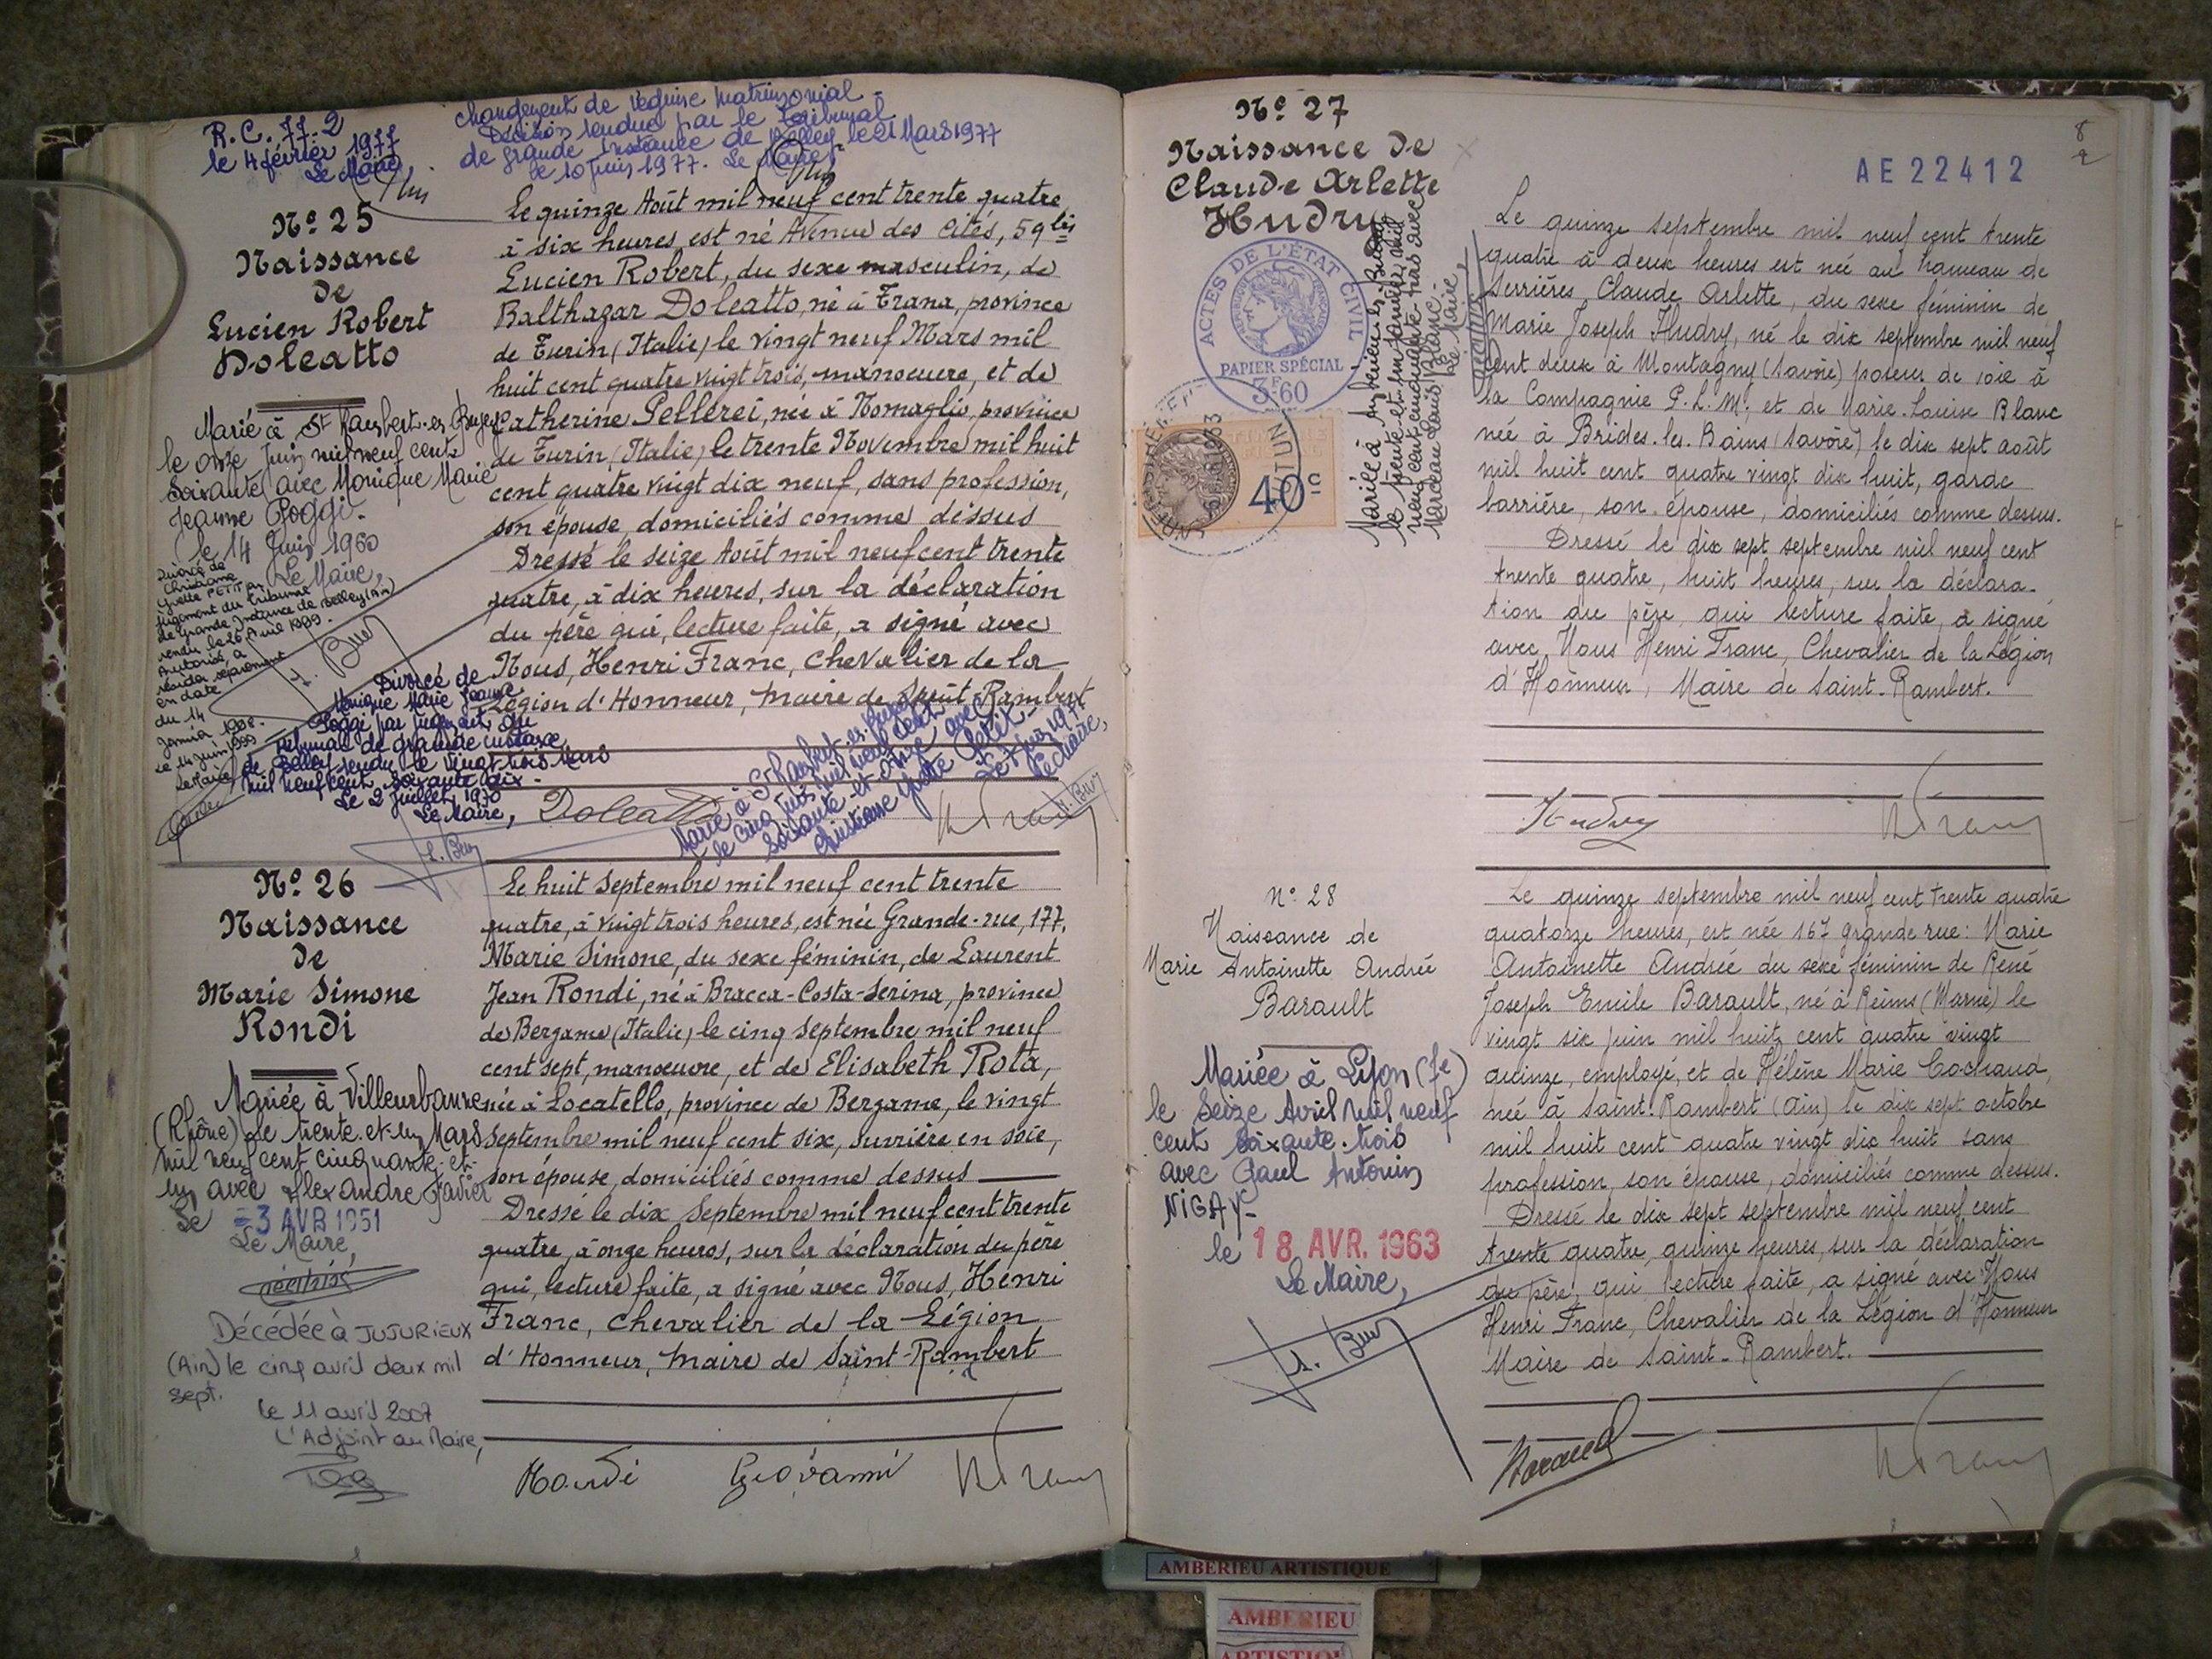 R.C. 77.2
le 4 février 1977
Le Maire,
Changement de Régime Matrimonial -
Décision rendue par le Tribunal
de grande Instance de Belley le 21 Mars 1977
le 10 Juin 1977. Le Maire,
Nº 25
Naissance
de
Lucien Robert
Doleatto
Marié à St Rambert-en-Bugey
le onze Juin mil neuf cent
soixante avec Monique Marie
Jeanne Poggi.
le 14 Juin 1960
Le Maire,
Divorcé de
Christiane
Yvette PETIT par
jugement du Tribunal
de Grande Instance de Belley (Ain)
rendu le 26 Avril 1999.
Autorisé à
résider séparément
en date
du 14
Janvier 1998.
Le 14 juin 1999
Le Maire
Divorcé de
Monique Marie Jeanne
Poggi par jugement du
tribunal de grande instance
de Belley rendu le vingt trois Mars
mil neuf cent soixante dix.
Le 2 Juillet 1970
Le Maire,
Le quinze Août mil neuf cent trente quatre
à six heures, est né Avenue des Cités, 59 bis
Lucien Robert, du sexe masculin, de
Balthazar Doleatto, né à Trana, province
de Turin (Italie) le vingt neuf Mars mil
huit cent quatre vingt trois, manoeuvre, et de
Catherine Pellerei, née à Nomaglio, province
de Turin (Italie) le trente Novembre mil huit
cent quatre vingt dix neuf, sans profession,
son épouse, domiciliés comme dessus
Dressé le seize Août mil neuf cent trente
quatre, à dix heures, sur la déclaration
du père qui, lecture faite, a signé avec
Nous, Henri Franc, Chevalier de la
Légion d'Honneur, Maire de Saint-Rambert
Marié à St Rambert-en-Bugey
le cinq Juin mil neuf cent
soixante et onze avec
Christiane Yvette Petit.
Le 7 Juin 1971
Le Maire,
Doleatto
Nº 26
Naissance
de
Marie Simone
Rondi
Mariée à Villeurbanne
(Rhône) le trente-et-un Mars
mil neuf cent cinquante-et-
un avec Alexandre Javier
Le -3 AVR 1951
Le Maire,
Décédée à JUJURIEUX
(Ain) le cinq avril deux mil
sept.
le 11 avril 2007
L'Adjoint au Maire,
Le huit Septembre mil neuf cent trente
quatre, à vingt trois heures, est née Grande-rue, 177,
Marie Simone, du sexe féminin, de Laurent
Jean Rondi, né à Bracca-Costa-Serina, province
de Bergame (Italie) le cinq Septembre mil neuf
cent sept, manoeuvre, et de Elisabeth Rota,
née à Locatello, province de Bergame, le vingt
Septembre mil neuf cent six, ouvrière en soie,
son épouse, domiciliés comme dessus
Dressé le dix Septembre mil neuf cent trente
quatre, à onze heures, sur la déclaration du père
qui, lecture faite, a signé avec Nous, Henri
Franc, Chevalier de la Légion
d'Honneur, Maire de Saint-Rambert
Rondi Giovanni
Nº 27
Naissance de
Claude Arlette
Hudry
ACTES DE L'ÉTAT CIVIL
PAPIER SPÉCIAL
3F60
40c
Mariée à Ambérieu-en-Bugey
le trente-et-un Janvier mil
neuf cent cinquante-trois avec
Marceau Louis Blanc.
Le Maire,
AE 22412
8
2
Le quinze septembre mil neuf cent trente
quatre à deux heures est née au hameau de
Serrières, Claude Arlette, du sexe féminin de
Marie Joseph Hudry, né le dix septembre mil neuf
cent deux à Montagny (Savoie) poseur de voie à
la Compagnie P.L.M. et de Marie-Louise Blanc
née à Brides-les-Bains (Savoie) le dix sept août
mil huit cent quatre vingt dix huit, garde
barrière, son épouse, domiciliés comme dessus.
Dressé le dix sept septembre mil neuf cent
trente quatre, huit heures, sur la déclara-
tion du père, qui lecture faite, a signé
avec, Nous Henri Franc, Chevalier de la Légion
d'Honneur, Maire de Saint-Rambert.
Hudry
Nº 28
Naissance de
Marie Antoinette Andrée
Barault
Mariée à Lyon (7e)
le seize Avril mil neuf
cent soixante-trois
avec Paul Antonin
NIGAY-
le 18 AVR. 1963
Le Maire,
Le quinze septembre mil neuf cent trente quatre
quatorze heures, est née 167 grande rue: Marie
Antoinette Andrée du sexe féminin de René
Joseph Emile Barault, né à Reims (Marne) le
vingt six juin mil huit cent quatre vingt
quinze, employé, et de Hélène Marie Cochaud,
née à Saint-Rambert (Ain) le dix sept octobre
mil huit cent quatre vingt dix huit sans
profession, son épouse, domiciliés comme dessus.
Dressé le dix sept septembre mil neuf cent
trente quatre, quinze heures, sur la déclaration
du père, qui lecture faite, a signé avec Nous
Henri Franc, Chevalier de la Légion d'Honneur
Maire de Saint-Rambert.
Barault
AMBERIEU ARTISTIQUE
AMBERIEU
ARTISTIQU